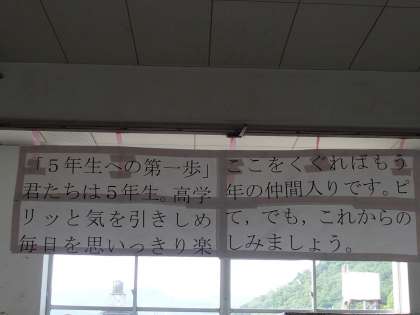 「5年生への第一歩」ここをくぐればもう
君たちは5年生。高学年の仲間入りです。ピ
リッと気を引きしめて，でも，これからの
毎日を思いっきり楽しみましょう。